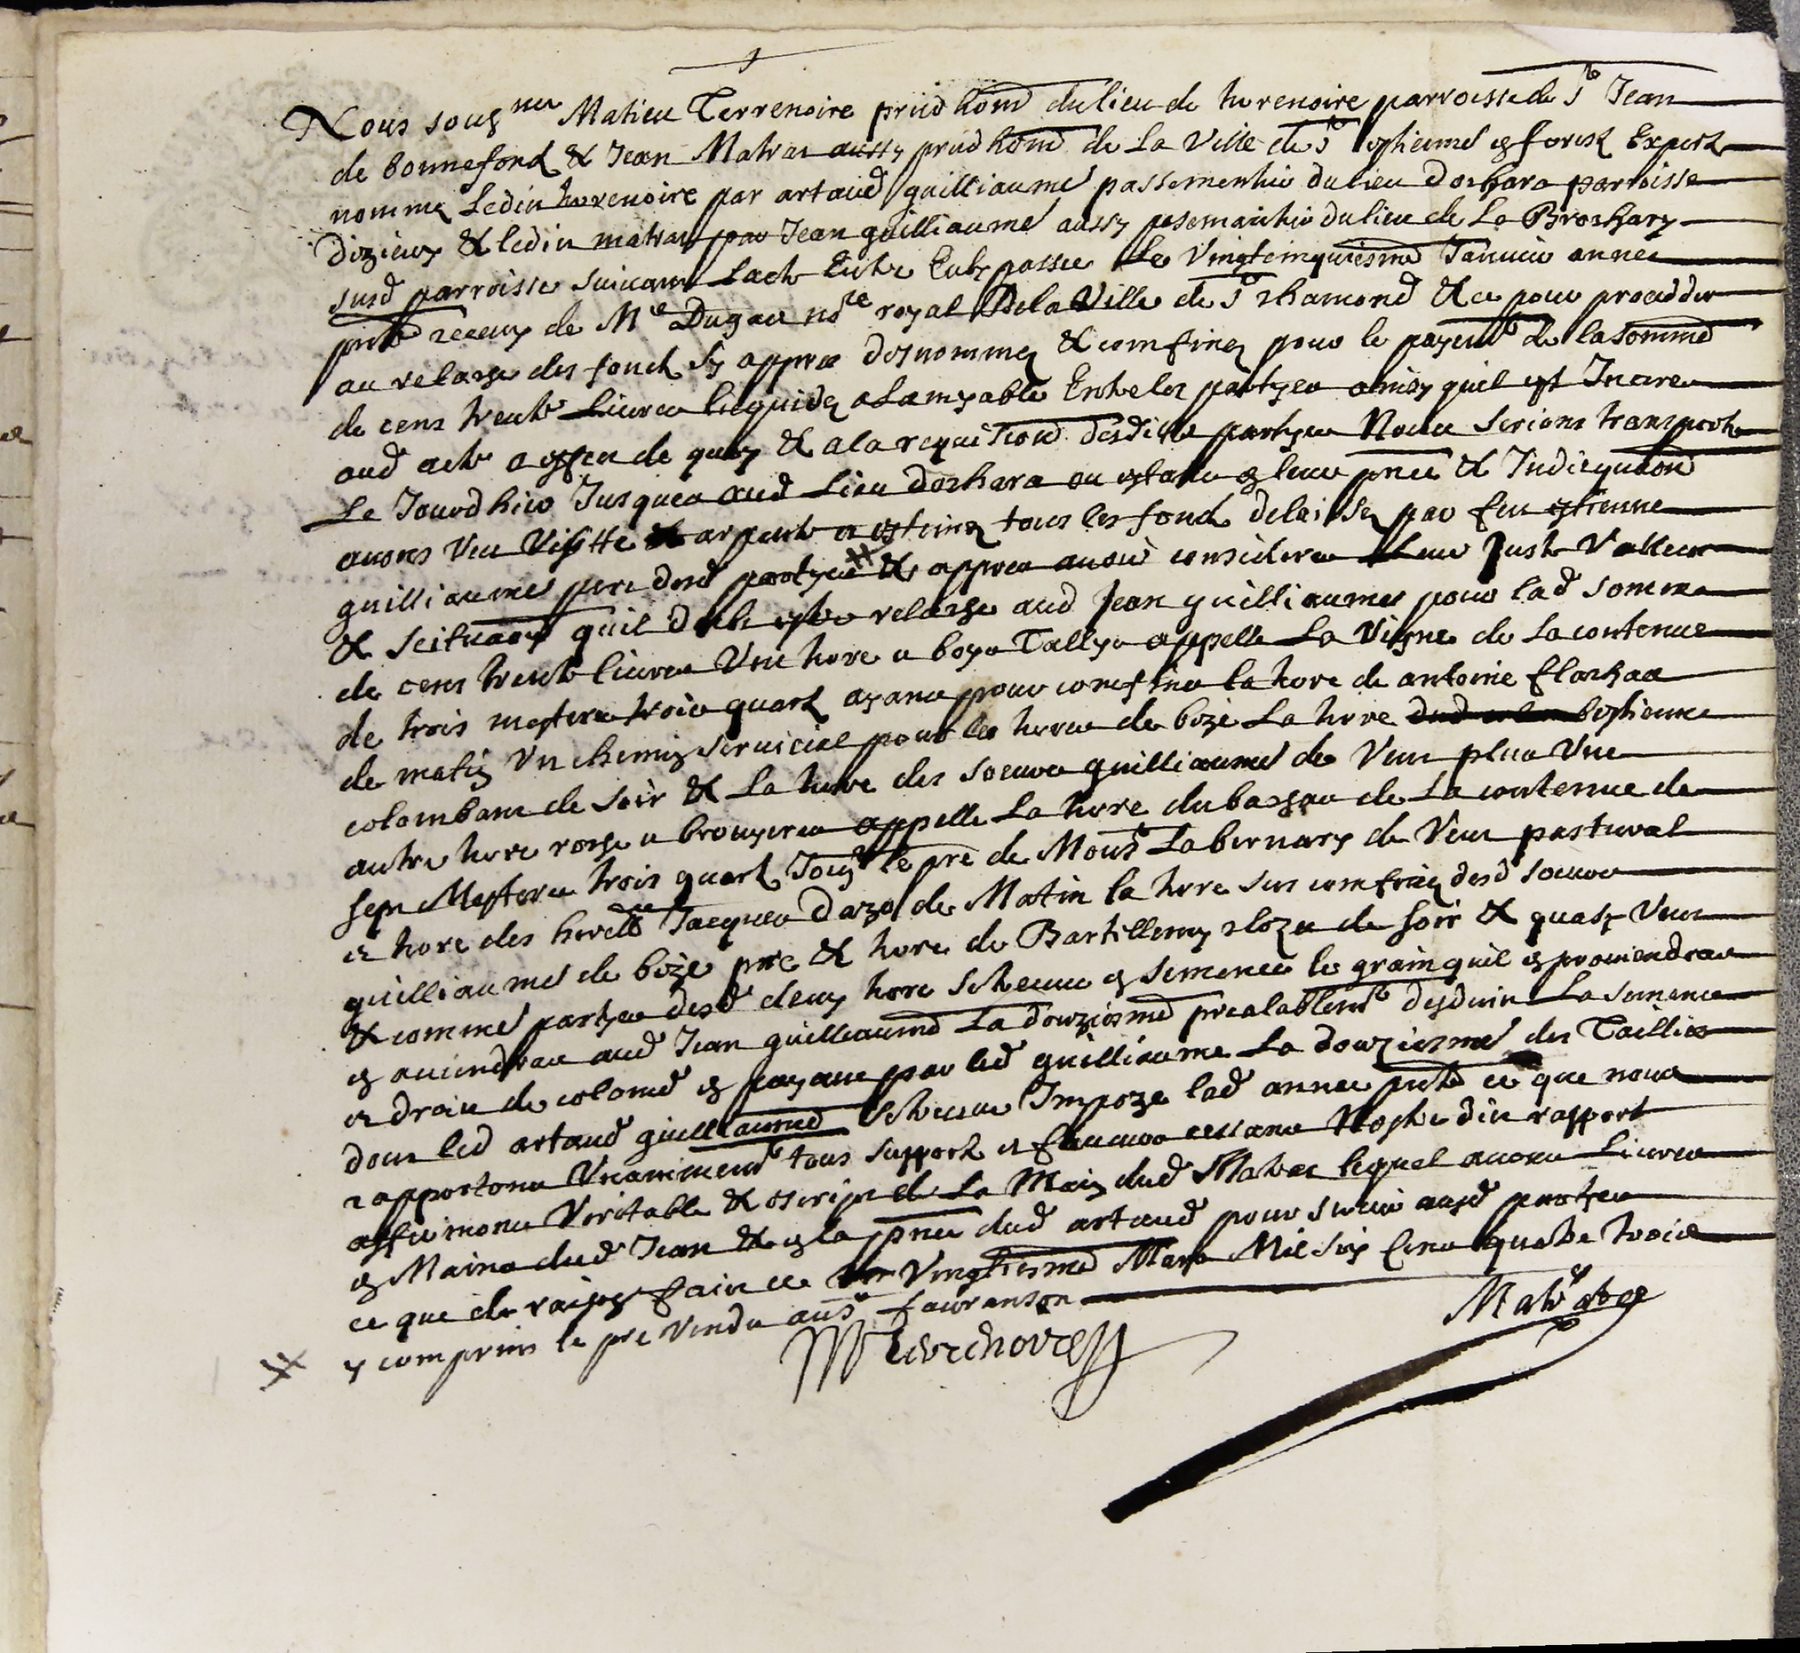 Nous sousnes Matieu Terrenoire prud hom du lieu de terenoire parroisse de St Jean
de bonnefond & Jean Matras aussy prud hom de La Ville de St esthienne en forest Expert
nomme Ledit terrenoire par artaud guilliaume passementier du lieu dorhara parroisse
dizieux & ledit matras par Jean guilliaume aussy pasemantier du lieu de La Broshary
susd parroisse suivant Lacte Entre Eulx passee Le Vingtcinquiesme Janvier annee
pnte receux de Me Dugas nore royal De la Ville de St Chamond & ce pour proceder
au relasge des fond sy appres desnommez & confinez pour le payemt de la somme
de cent trente Livres liquidez a Lamyable Entre les partyes ainsy quil est Incere
aud acte a effect de quoy & a la requition desdites partyes Nous serions transporte
Le Jourdhuy Jusques aud Lieu dorhara ou estant en leur pnce & Indicquation
avons Veu Visitte & arpente & estimez tous les fond delaissez par feu estienne
guilliaume pere desd partyes # & appres avoir considere Leur Juste Valleur
& scituaon quil doibt estre relasge aud Jean guilliaume pour lad somme
de cent trente livres Une terre a boys Tallys appelle La Vigne de La contenue
de trois mestere trois quart ayant pour confins la terre de antoine flashaa
de matin Un chemin serviciel pour les terres de bize La terre destienne
colombant de soir & La terre des soeurs guilliaume de Vent plus Une
autre terre roshe a brouyeres appelle La terre du bassau de La contenue de
sept Mestere trois quart Joug le pre de Monsr Labernary de Vent pastural
et terre des herd Jacques Dazo de Matin la terre sus confinez desd soeurs
guilliaume de bize pre & terre de Bartillemy cloze de soir & quasy Vent
& comme partye desd deux terre se treuve en semence le grain quil en proviendra
en aviendra aud Jean guilliaume La douziesme prealablemt desduit La semence
et droit de colome en payant par led guilliaume La douziesme des Taillies
dont led artaud guilliaume se treuve Impoze lad annee pnte ce que nous
rapportons Unanimemt tous support et faveur cessant Nostre dit rapport
affirmons Veritable & escript de La Main dud Matras lequel avons Livres
en Mains dud Jean & en la pnce dud artaud pour servir ausd partyes
ce que de raison fait ce Vingtiesme Mars Mil six cent quatre trois
# y comprins le pre Vendu aus faurenson
Matras
M Terrenoire